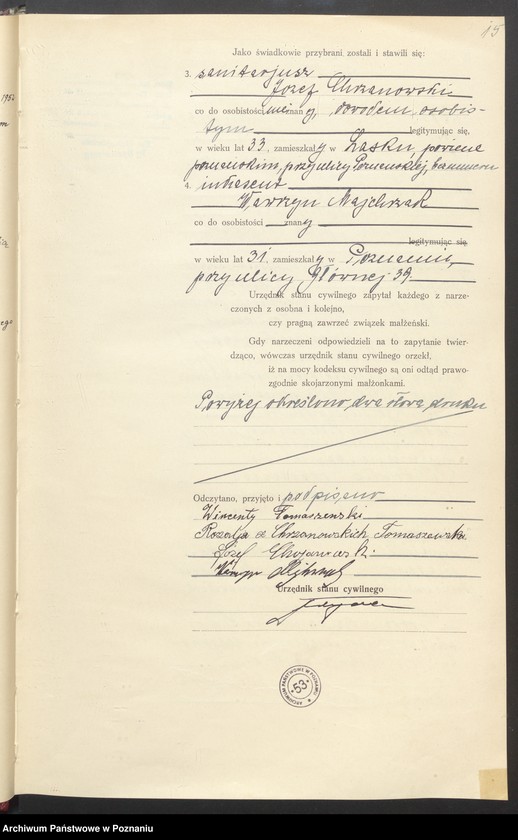 15
Jako świadkowie przybrani zostali i stawili się:
3. sanitarjusz
Józef Chrzanowski
co do osobistości znany, dowodem osobis-
tym legitymując się,
w wieku lat 33, zamieszkały w Lasku, powiecie
poznańskim, przy ulicy Poznańskiej,
4. inkasent
Wawrzyn Majchrzak
co do osobistości znany
legitymując się
w wieku lat 31, zamieszkały w Poznaniu,
przy ulicy Głównej 39.
Urzędnik stanu cywilnego zapytał każdego z narze-
czonych z osobna i kolejno,
czy pragną zawrzeć związek małżeński.
Gdy narzeczeni odpowiedzieli na to zapytanie twier-
dząco, wówczas urzędnik stanu cywilnego orzekł,
iż na mocy kodeksu cywilnego są oni odtąd prawo-
zgodnie skojarzonymi małżonkami.
Powyżej określono dwa słowa druku
Odczytano, przyjęto i podpisano
Wincenty Tomaszewski
Rozalja z Chrzanowskich Tomaszewska
Józef
Urzędnik stanu cywilnego
ARCHIWUM PAŃSTWOWE W POZNANIU
53
Archiwum Państwowe w Poznaniu